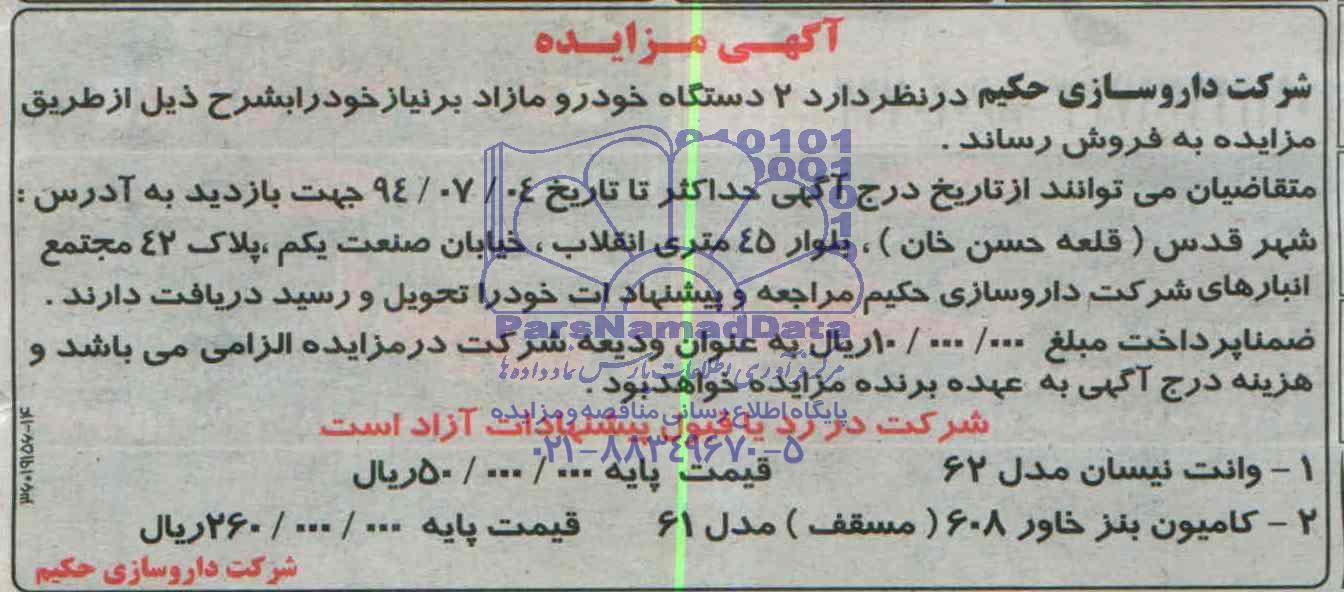 آگهی مزایده
شرکت داروسازی حکیم درنظردارد ۲ دستگاه خودرو مازاد برنیازخودرابشرح ذیل ازطریق
مزایده به فروش رساند .
متقاضیان می توانند ازتاریخ درج آگهی حداکثر تا تاریخ ۰٤ / ۰۷ / ۹٤ جهت بازدید به آدرس :
شهر قدس ( قلعه حسن خان ) ، بلوار ٤۵ متری انقلاب ، خیابان صنعت یکم ،پلاک ٤۲ مجتمع
انبارهای شرکت داروسازی حکیم مراجعه و پیشنهاد ات خودرا تحویل و رسید دریافت دارند .
ضمناپرداخت مبلغ ۱۰/ ۰۰۰ / ۰۰۰ریال به عنوان ودیعه شرکت درمزایده الزامی می باشد و
هزینه درج آگهی به عهده برنده مزایده خواهدبود .
شرکت در رد یا قبول پیشنهادات آزاد است
۱ - وانت نیسان مدل ۶۲ قیمت پایه ۵۰/ ۰۰۰ / ۰۰۰ریال
۲ - کامیون بنز خاور ۶۰۸ ( مسقف ) مدل ۶۱ قیمت پایه ۲۶۰/ ۰۰۰ / ۰۰۰ریال
شرکت داروسازی حکیم
۳۶۰۱۹۱۵۶-۱۴
010101
0001
0
1
ParsNamadData
مرکز فرآوری اطلاعات پارس نماد داده ها
پایگاه اطلاع رسانی مناقصه و مزایده
۰۲۱-۸۸۳٤۹۶۷۰-۵